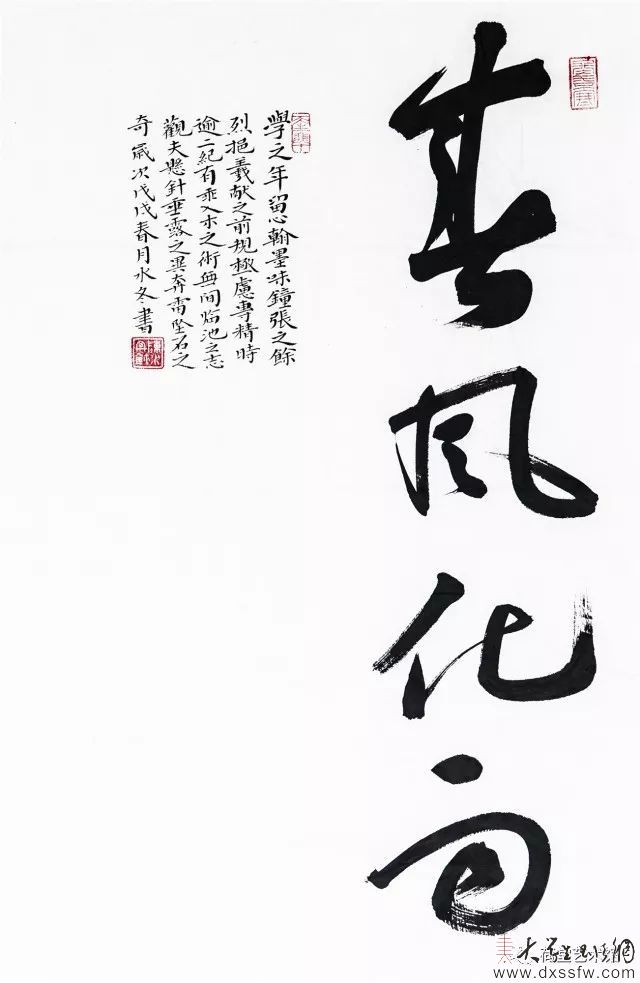 春风化雨
學之年留心翰墨味鐘張之餘
烈挹羲献之前規極慮專精時
逾二紀有乖入木之術無间临池之志
觀夫懸針垂露之異奔雷坠石之
奇歲次戊戌春月水冬書
大学生书法網
www.dxssfw.com